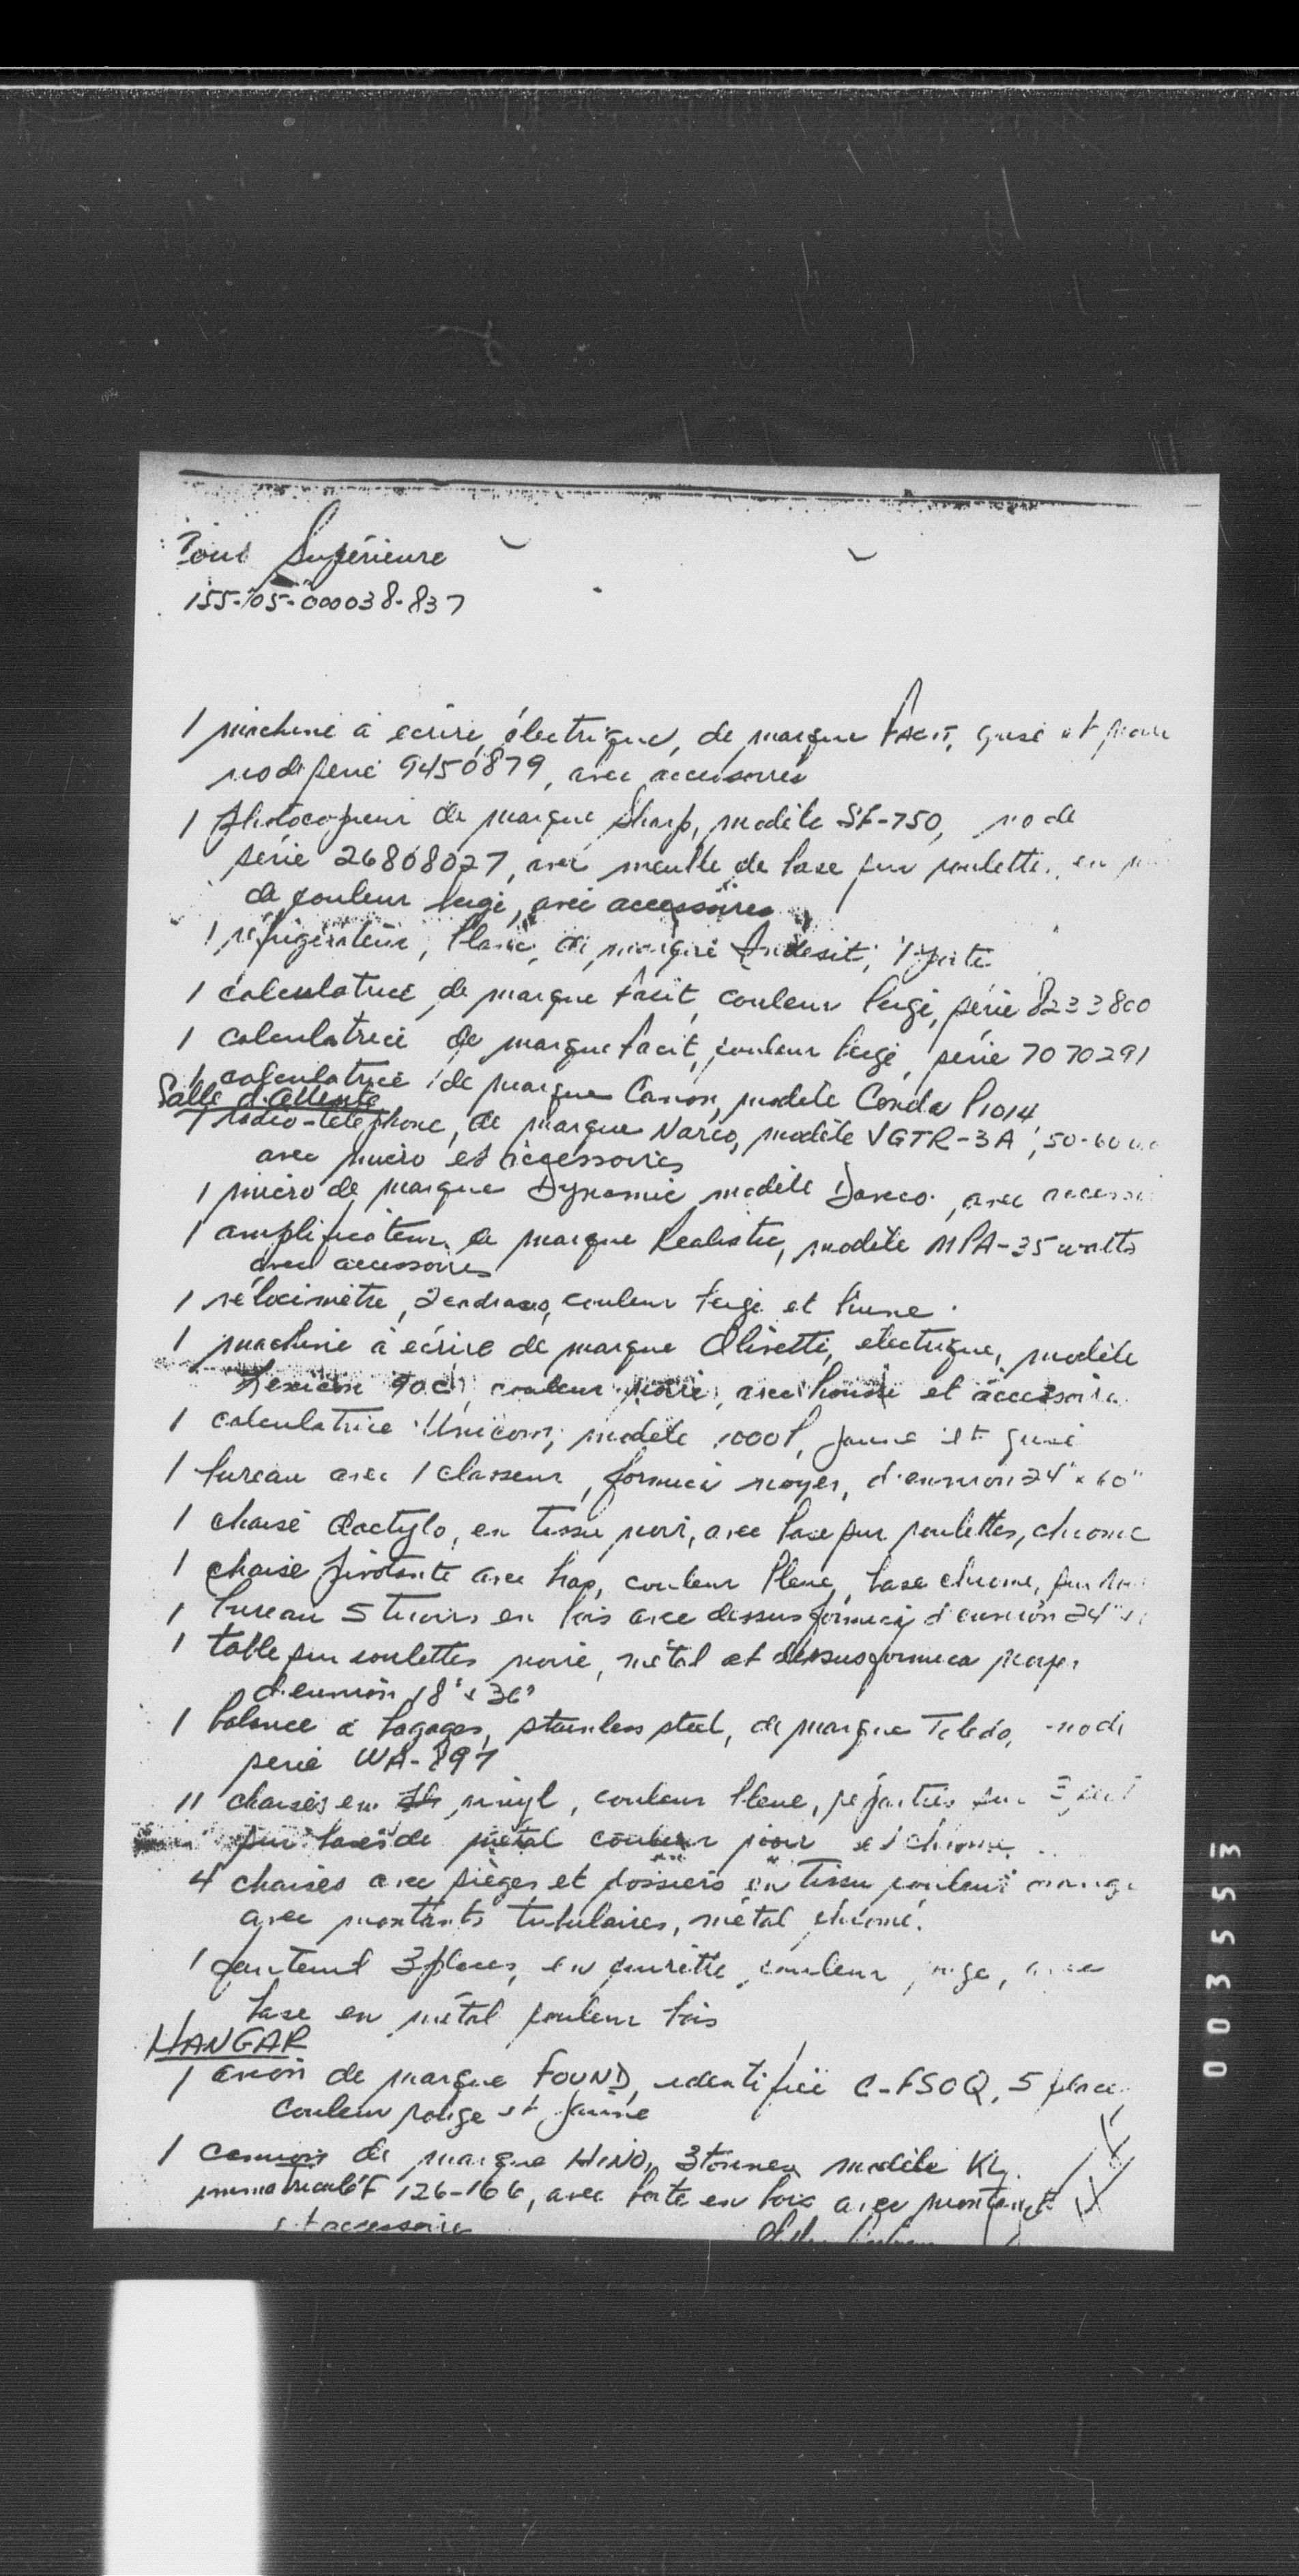 Cour Supérieure
155-05-000038-837
1 machine à écrire électrique, de marque Facit, grise et
no de série 9450879, avec accessoires
1 photocopieur de marque Sharp, modèle SF-750, no de
série 26808027, avec meuble de base sur roulette, en
de couleur beige, avec accessoires
1 réfrigérateur, blanc, de marque Indesit, 1 porte
1 calculatrice de marque Facit, couleur beige, série 8233800
1 calculatrice de marque Facit, couleur beige, série 7070291
1 calculatrice de marque Canon, modèle Canola P1014
Salle d'attente
1 radio-téléphone, de marque Narco, modèle VGTR-3A, 50-60
avec micro et accessoires
1 micro de marque Dynamic modèle, avec
1 amplificateur de marque Realistic, modèle MPA-35 watts
avec accessoires
1 vélocimètre, 2 cadrans, couleur beige et brune
1 machine à écrire de marque Olivetti, électrique, modèle
Lexicon 90c, couleur noire, avec housse et accessoires
1 calculatrice Unicom, modèle 1000P, jaune et grise
1 bureau avec 1 classeur, formica noyer, d'environ 24" x 60"
1 chaise dactylo, en tissu noir, avec base sur roulettes, chrome
1 chaise pivotante avec bras, couleur bleue, base chrome, sur
1 bureau 5 tiroirs en bois avec dessus formica d'environ 24" x
1 table sur roulettes noire, métal et dessus formica noyer
d'environ 18" x 36"
1 balance à bagages, stainless steel, de marque Toledo, no de
série WA-897
11 chaises en vinyl, couleur bleue, réparties sur 3
sur bases de métal couleur noir et chrome
4 chaises avec sièges et dossiers en tissu couleur orange
avec montants tubulaires, métal chromé.
1 fauteuil 3 places, en cuirette, couleur rouge, avec
base en métal couleur bois
HANGAR
1 avion de marque FOUND, identifié C-FSOQ, 5 places
couleur rouge et jaune
1 camion de marque HINO, 3 tonnes modèle KL
immatriculé F 126-166, avec boite en bois avec montants
et accessoires
003553